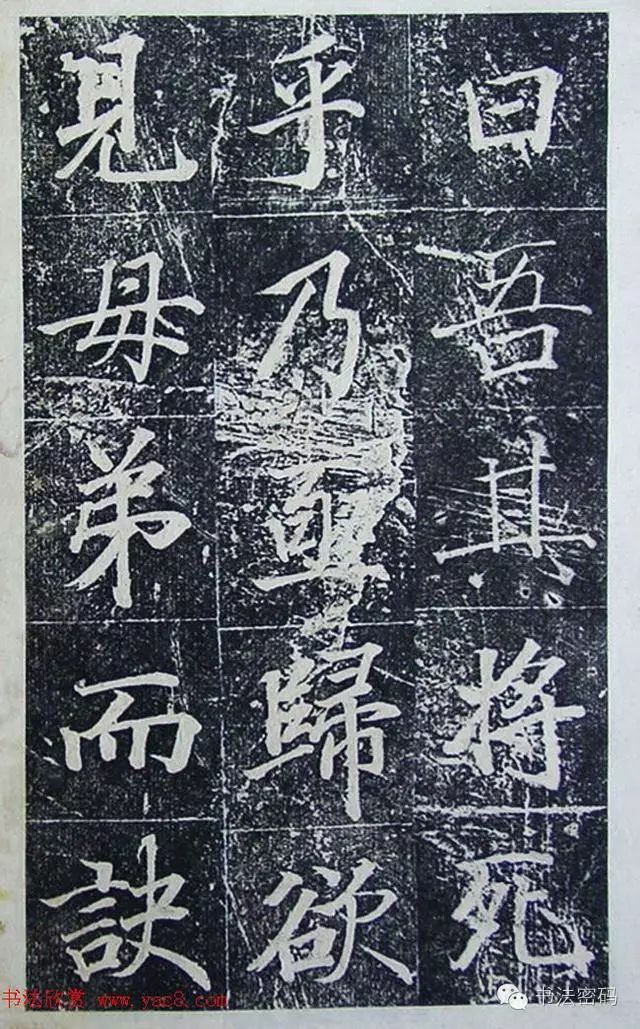 曰吾其將死
乎乃亟歸欲
見母弟而訣
书法欣赏 www.yac8.com
书法密码